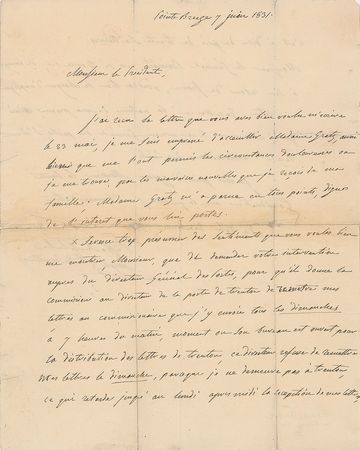 Pointe Breeze 7 juin 1831.
Monsieur le Président,
J'ai reçu la lettre que vous avez bien voulu m'écrire
le 23 mai, je me suis empressé d'accueillir Madame Gratz, aussi
que me l'ont permis les circonstances douloureuses où
je me trouve, par les mauvaises nouvelles que je reçois de ma
famille. Madame Gratz m'a parue en tous points, digne
de l'interet que vous lui portez.
Serait-ce trop présumer des sentiments que vous voulez bien
me montrer Monsieur, que de demander votre intervention
auprès du directeur Général des Postes, pour qu'il donne la
commission au directeur de la poste de trenton de remettre mes
lettres au commissionnaire que j'y envoie tous les dimanches
à 7 heures du matin, moment où son bureau est ouvert pour
la distribution des lettres de trenton, ce directeur refuse de remettre
mes lettres le dimanche, parceque je ne demeure pas à trenton,
ce qui retarde jusqu'au lundi après midi la reception de mes lettres